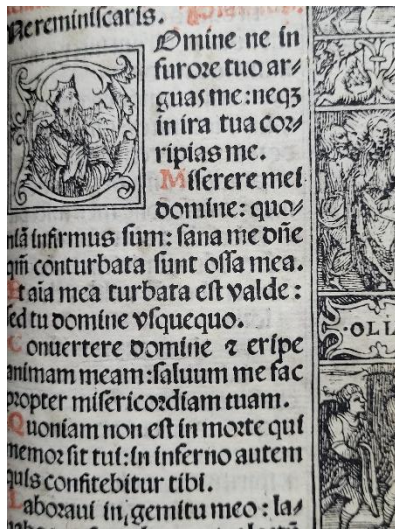 Ne reminiscaris.
Domine ne in
furore tuo ar⸗
guas me: neqꝫ
in ira tua cor⸗
ripias me.
Miserere mei
domine: quo⸗
niā infirmus sum: sana me dn̄e
qm̄ conturbata sunt ossa mea.
Et aīa mea turbata est valde:
sed tu domine vsquequo.
Conuertere domine ⁊ eripe
animam meam: saluum me fac
propter misericordiam tuam.
Quoniam non est in morte qui
memor sit tui: in inferno autem
quis confitebitur tibi.
Laboraui in gemitu meo: la⸗
·OLL